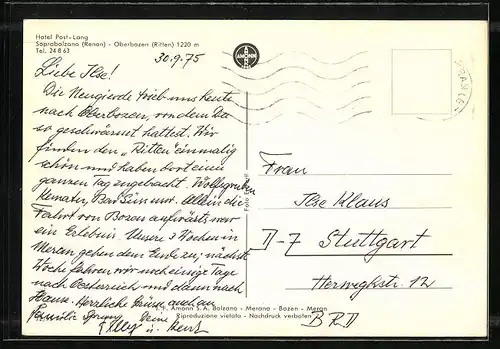 Hotel Post-Lang
Soprabolzano (Renon) - Oberbozen (Ritten) 1220 m
Tel. 24 8 63
AMONN
30.9.75
Liebe Ilse!
Die Neugierde trieb uns heute
nach Oberbozen, von dem Du
so geschwärmt hattest. Wir
finden den „Ritten" einmalig
schön und haben dort einen
ganzen Tag zugebracht. Wolfsgruben
Kematen, Bad Süss usw. Allein die
Fahrt von Bozen aufwärts war
ein Erlebnis. Unsere 3 Wochen in
Meran gehen dem Ende zu; nächste
Woche fahren wir noch einige Tage
nach Oesterreich und dann nach
Hause. Herzliche Grüsse, auch an
Familie Deine
u.
Frau
Ilse Klaus
D-7 Stuttgart
Herweghstr. 12
BRD
Amonn S. A. Bolzano - Merano - Bozen - Meran
Riproduzione vietata - Nachdruck verboten